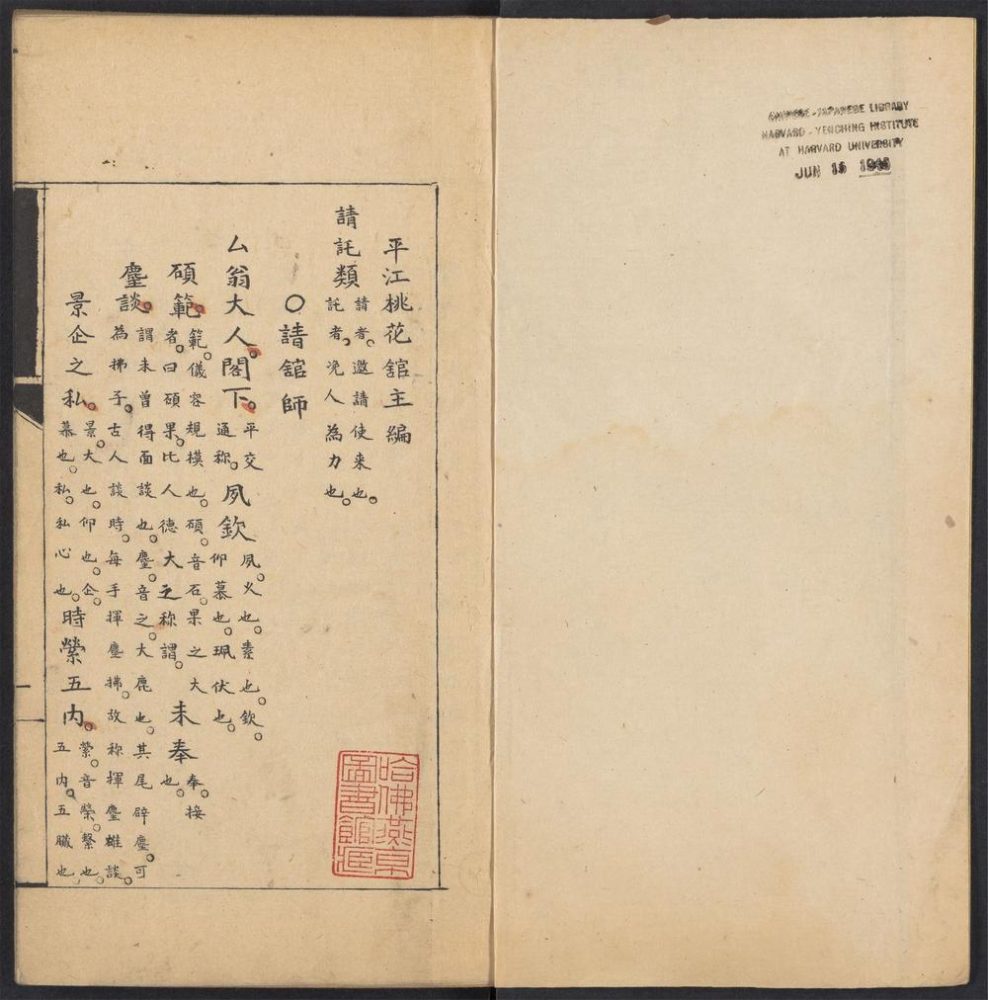 CHINESE-JAPANESE LIBRARY
HARVARD-YENCHING INSTITUTE
AT HARVARD UNIVERSITY
JUN 15
平江桃花舘主編
請託類 請者。邀請使来也。託者。浼人為力也。
○請舘師
厶翁大人閣下。平交通称。夙欽 夙。久也。素也。欽。仰慕也。珮伏也。
碩範。範。儀容規模也。碩。音石。果之大者。曰碩果。比人德大之称謂。未奉 奉。接也。
麈談。謂未曾得面談也。麈。音之。大鹿也。其尾辟塵。可為拂子。古人談時。每手揮麈拂。故称揮麈雄談。
景企之私。景。大也。仰也。企。慕也。私。私心也。時縈五内。縈。音榮。繫也。五内。五臟也。
哈佛燕京
圖書館藏